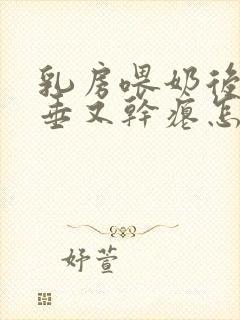 乳房喂奶後
垂又幹瘪怎
妤萱